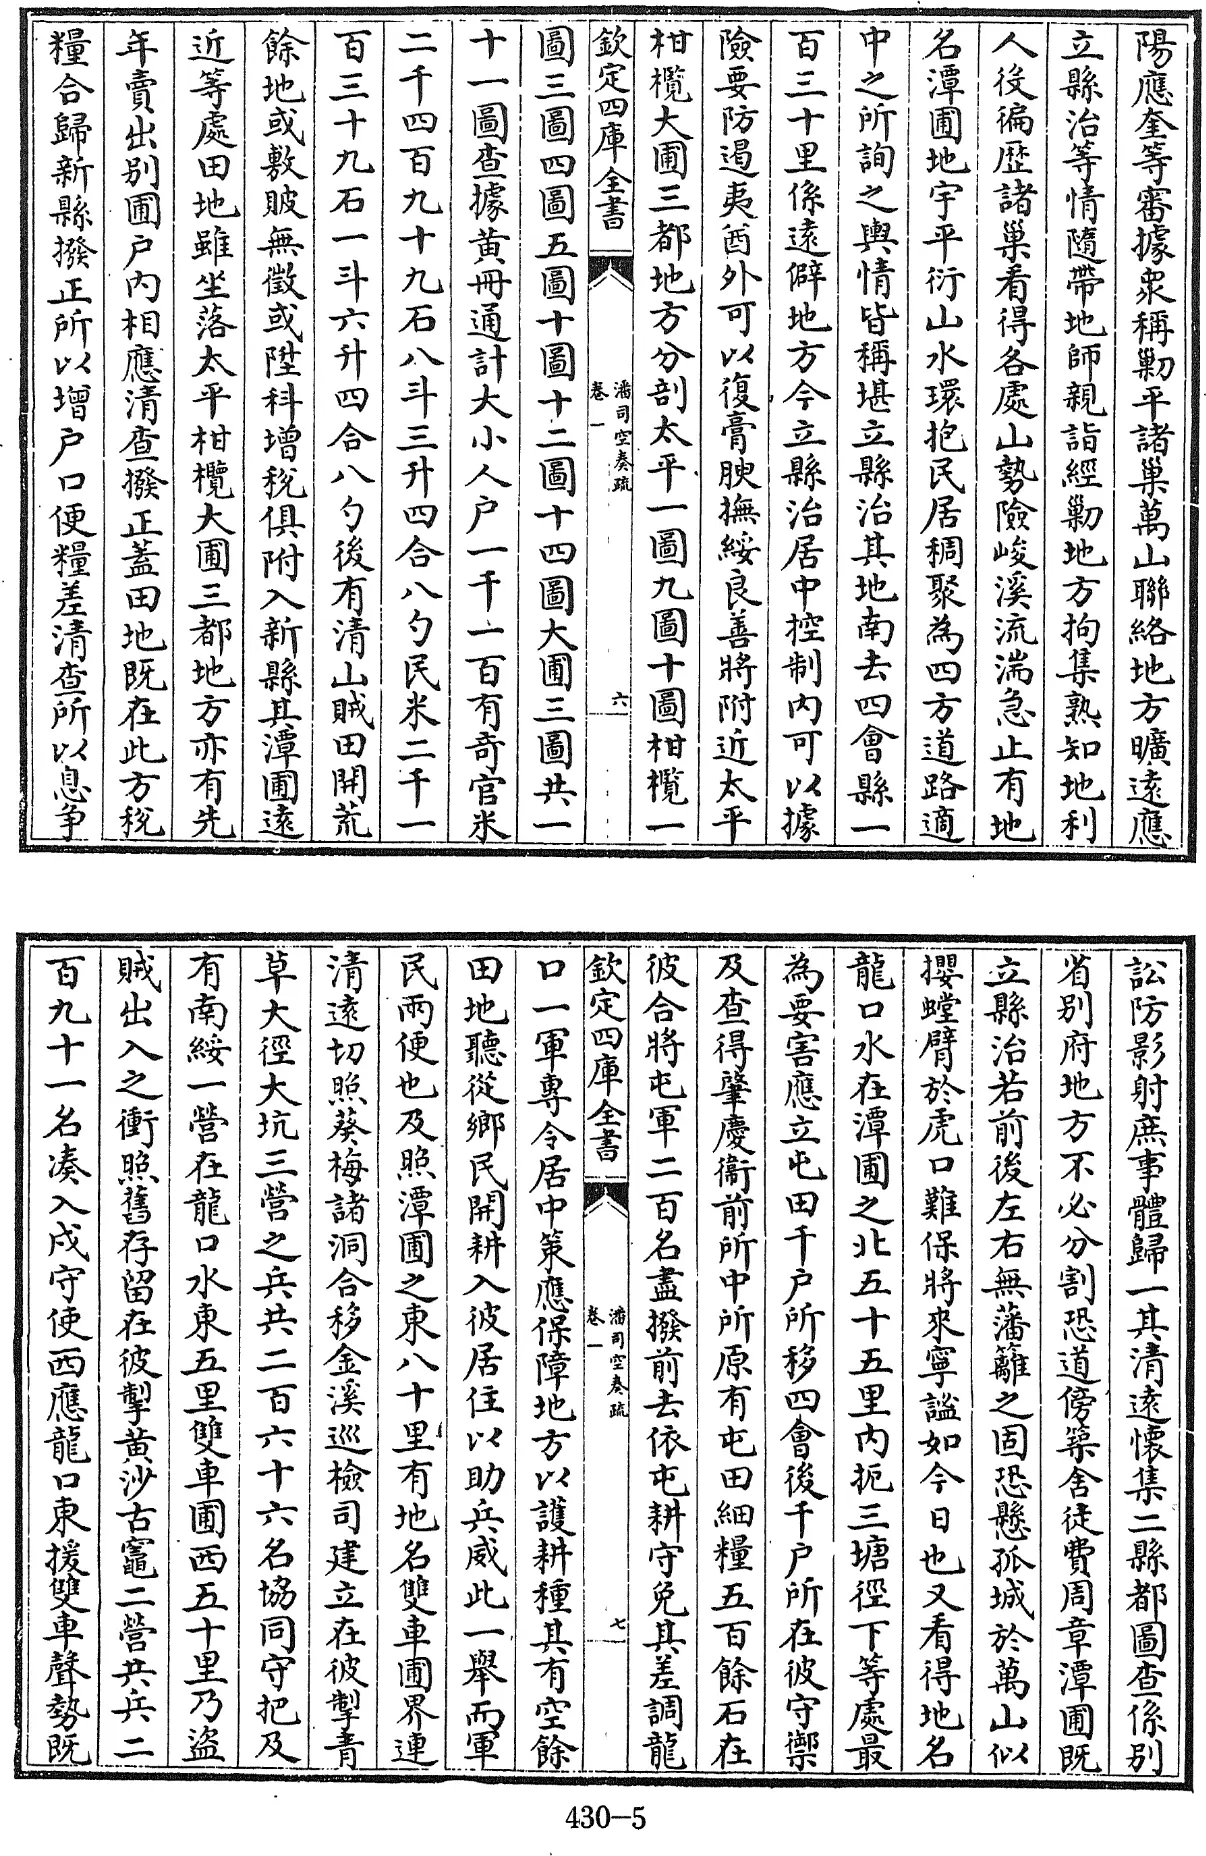 陽應奎等審據衆稱勦平諸巢萬山聯絡地方曠遠應
立縣治等情隨帶地師親詣經勦地方拘集熟知地利
人役徧歴諸巢看得各處山勢險峻溪流湍急止有地
名潭圃地宇平衍山水環抱民居稠聚為四方道路適
中之所詢之輿情皆稱堪立縣治其地南去四會縣一
百三十里係遠僻地方今立縣治居中控制内可以據
險要防遏夷酋外可以復膏腴撫綏良善將附近太平
柑欖大圃三都地方分剖太平一圖九圖十圖柑欖一
欽定四庫全書
潘司空奏疏
卷一
六
圖三圖四圖五圖十圖十二圖十四圖大圃三圖共一
十一圖查據黄冊通計大小人户一千一百有奇官米
二千四百九十九石八斗三升四合八勺民米二千一
百三十九石一斗六升四合八勺後有清山賊田開荒
餘地或敷賍無徵或陞科增稅俱附入新縣其潭圃遠
近等處田地雖坐落太平柑欖大圃三都地方亦有先
年賣出别圃户内相應清查撥正蓋田地既在此方稅
糧合歸新縣撥正所以增户口便糧差清查所以息争
訟防影射庶事體歸一其清遠懷集二縣都圖查係别
省别府地方不必分割恐道傍築舍徒費周章潭圃既
立縣治若前後左右無藩籬之固恐懸孤城於萬山似
攖螳臂於虎口難保將來寧謐如今日也又看得地名
龍口水在潭圃之北五十五里内扼三塘徑下等處最
為要害應立屯田千户所移四會後千户所在彼守禦
及查得肇慶衛前所中所原有屯田細糧五百餘石在
彼合將屯軍二百名盡撥前去依屯耕守免其差調龍
欽定四庫全書
潘司空奏疏
卷一
七
口一軍專令居中策應保障地方以護耕種其有空餘
田地聽從鄉民開耕入彼居住以助兵威此一舉而軍
民兩便也及照潭圃之東八十里有地名雙車圃界連
清遠切照葵梅諸洞合移金溪巡檢司建立在彼掣青
草大徑大坑三營之兵共二百六十六名協同守把及
有南綏一營在龍口水東五里雙車圃西五十里乃盜
賊出入之衝照舊存留在彼掣黄沙古竈二營共兵二
百九十一名湊入戍守使西應龍口東援雙車聲勢既
430-5